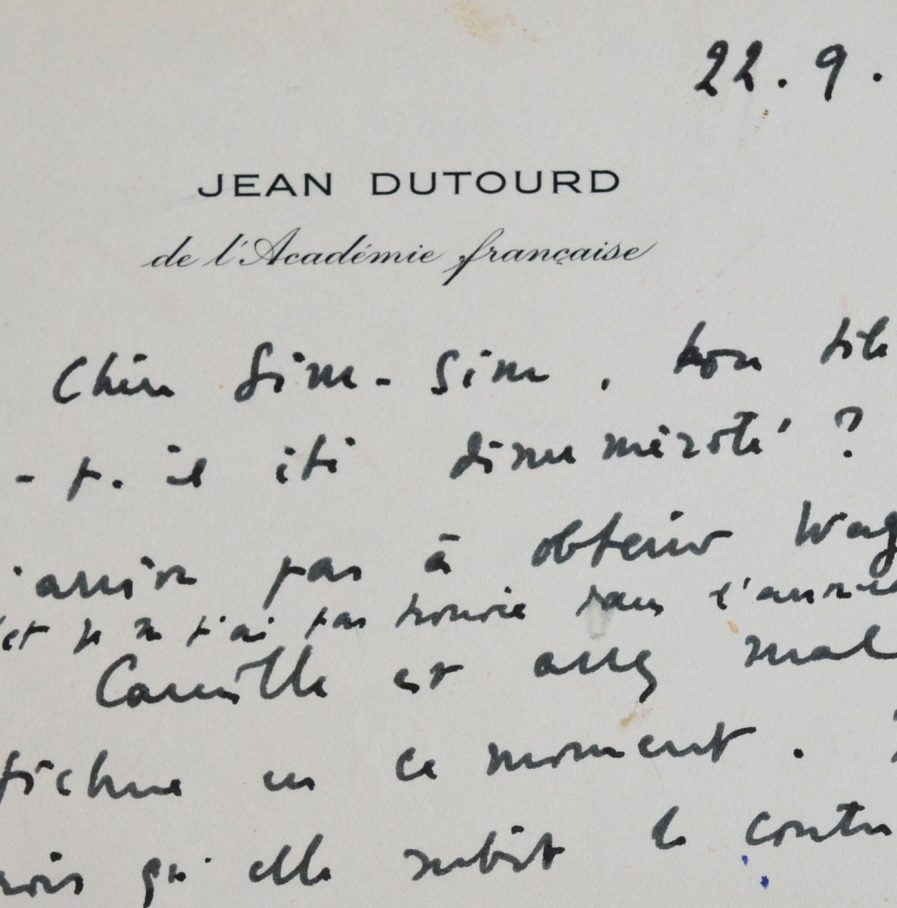 22.9.
JEAN DUTOURD
de l'Académie française
Chère Sim-Sim, ton tél
-t-il été dinuméroté ?
'arrive pas à obtenir Wag
(et je ne t'ai pas trouvée dans l'annuai
Camille est assez mal
fichue en ce moment.
crois qu'elle subit le contre